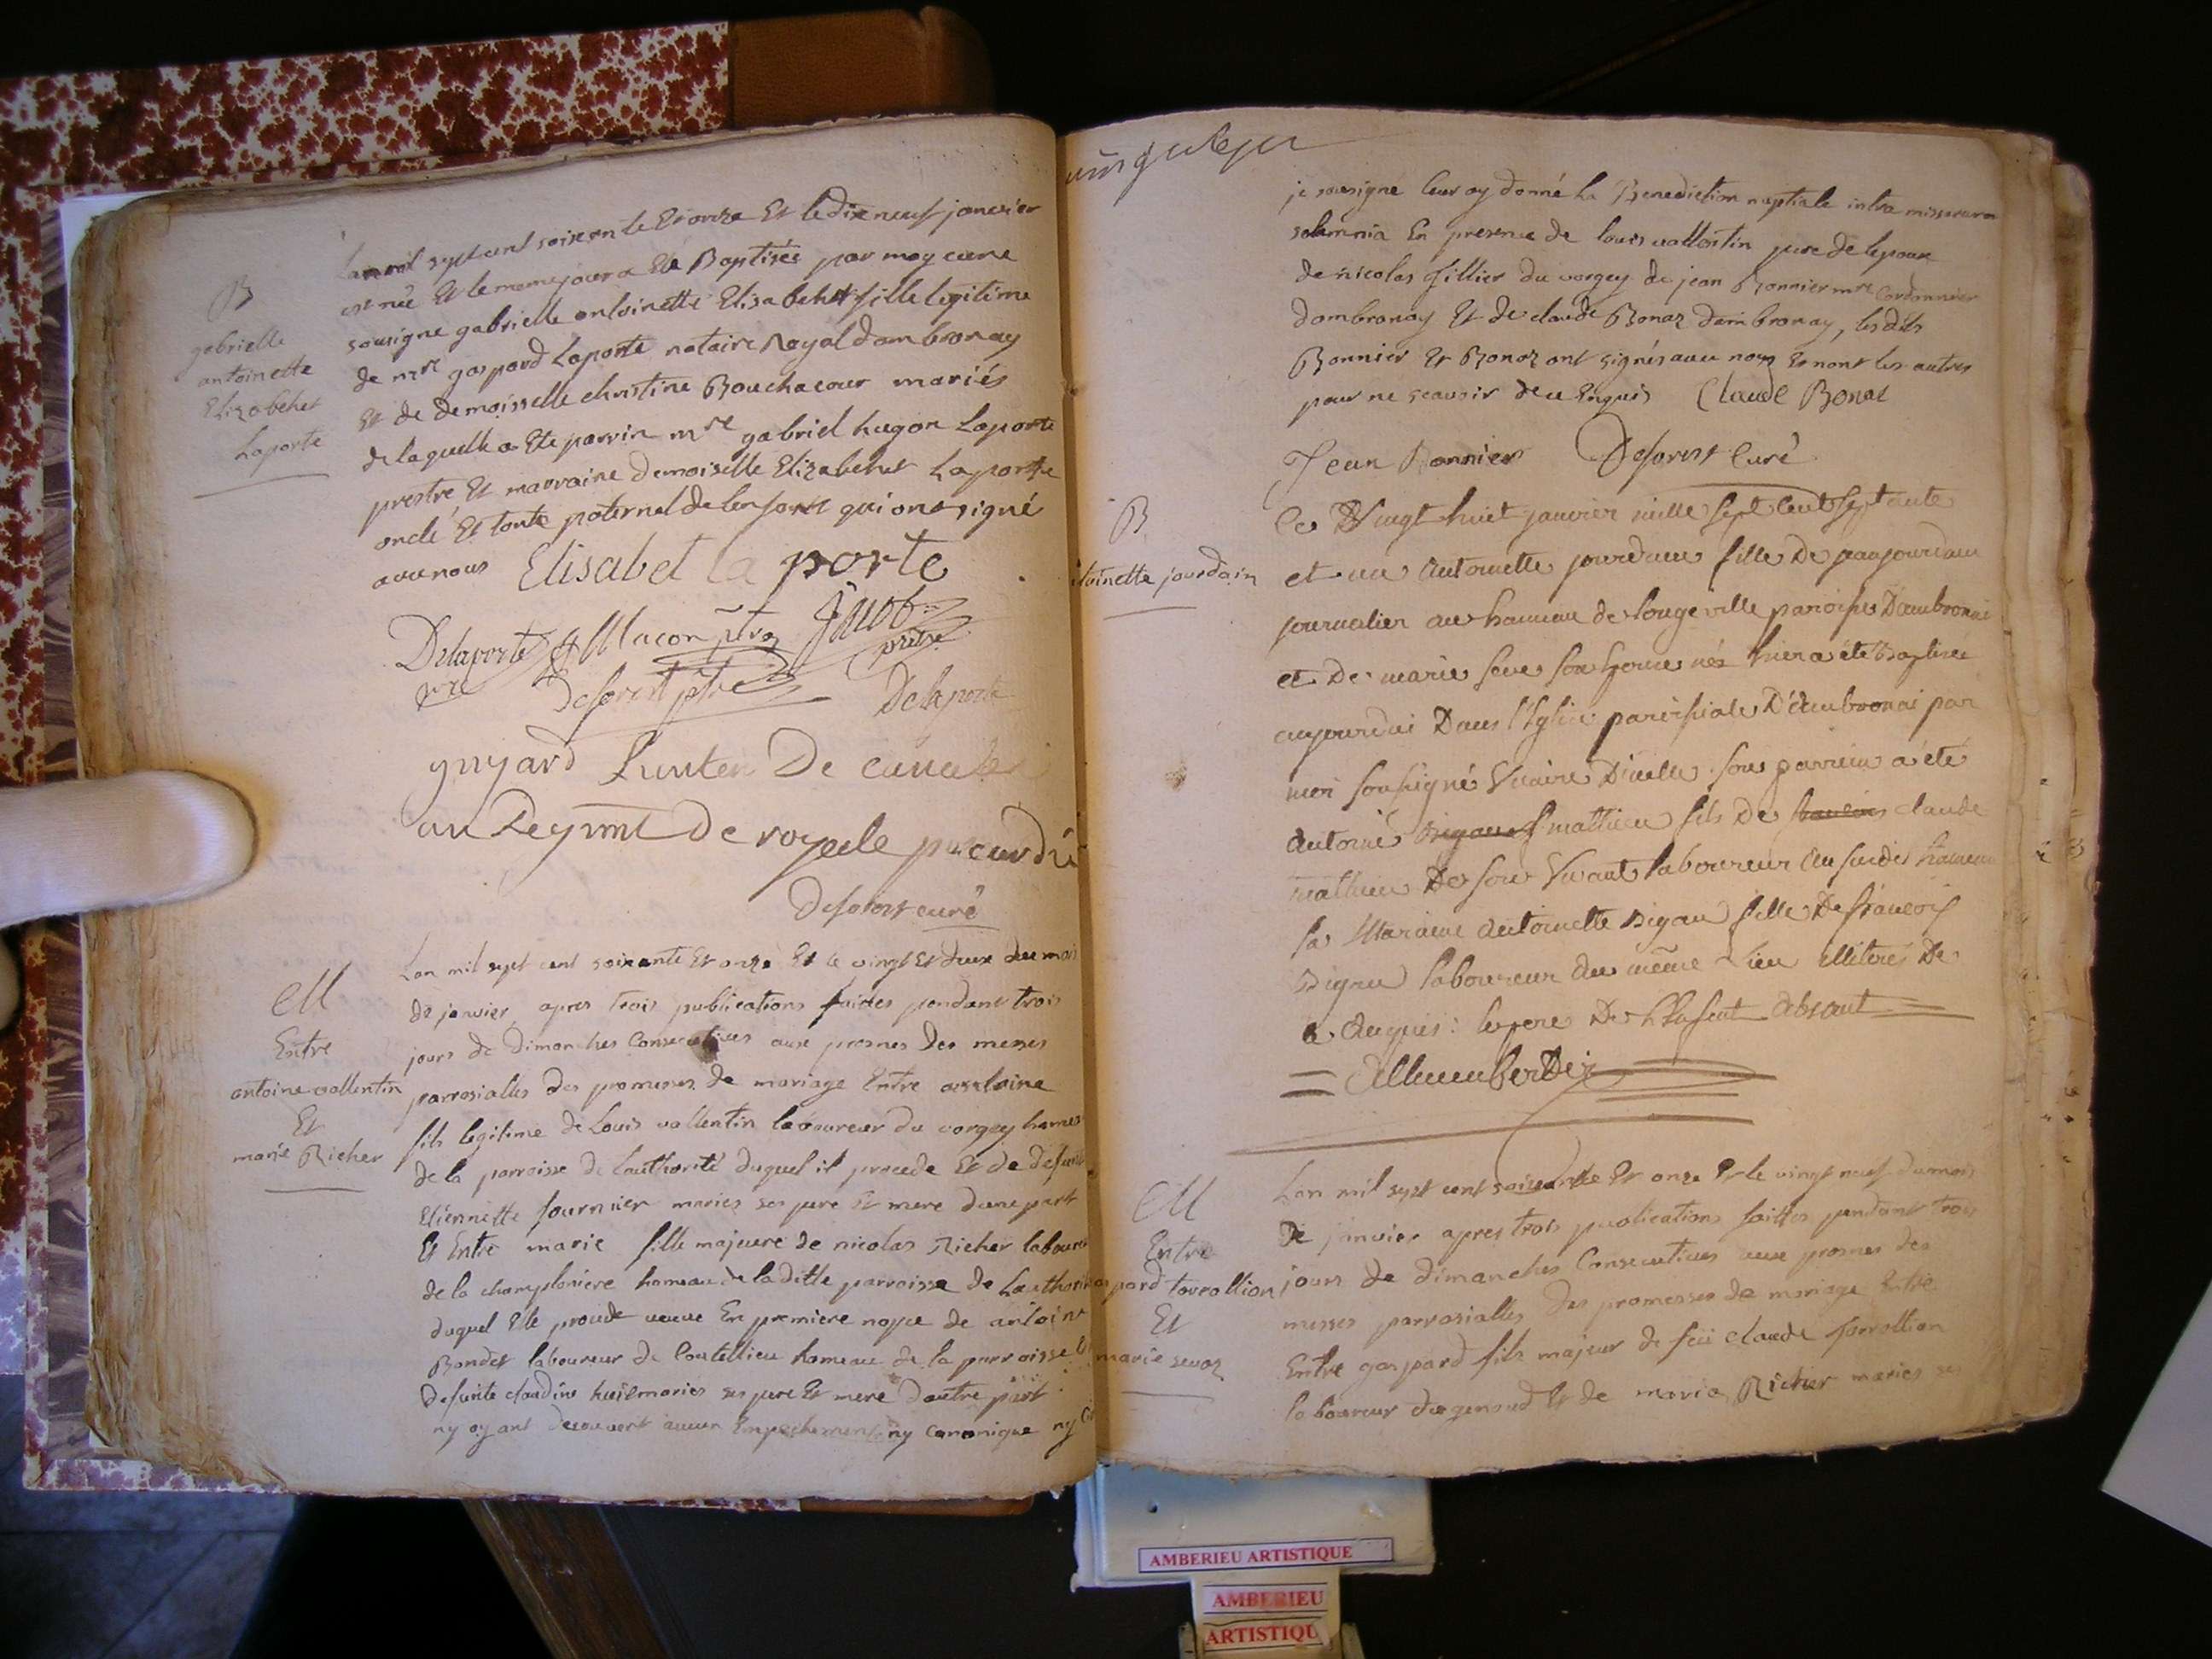 B
gabrielle
antoinette
Elizabehet
Laporte
Lan mil sept cent soixante Et onze Et le dix neuf janvier
est née Et le meme jour a Eté Baptisée par moy curé
sousigne gabrielle antoinette Elisabehet fille legitime
de mre gaspard Laporte notaire Royal dambronay
Et de demoisselle christine Bouchacour mariés
de laquelle a Ete parrin mre gabriel hugon Laporte
prestre Et marraine demoiselle Elizabehet Laporte
oncle Et tante paternel de lenfant qui ont signé
avec nous Elisabet la porte
Delaporte
Deforest ptre
prêtre
Delaporte
guyard
au Regimt De royale picardi
Deforest curé
M
Entre
antoine vallentin
Et
marie Richer
Lan mil sept cent soixante Et onze Et le vingt Et deux du mois
de janvier apres trois publications faites pendant trois
jours de dimanches Consecutives aux prosnes des messes
parrosialles des promesses de mariage Entre antoine
fils legitime de Louis vallentin laboureur du vorgey hameau
de la parroisse de lauthorité duquel il procede Et de defunte
Etiennette fournier maries ses pere Et mere dune part
Et Entre marie fille majeure de nicolas Richer laboureur
de la championiere hameau de la ditte parroisse de Lauthorité
duquel Elle procede veuve En premiere nopce de antoine
Bondet laboureur de Coutellieu hameau de la parroisse
defunte claudine maries ses pere Et mere dautre part
ny ayant decouvert aucun Empechement ny canonique ny
je sousigné leur ay donné la Benediction nuptiale intra missarum
solemnia En presence de louis vallentin pere de lepoux
de nicolas fillier du vorgey de jean Bonnier mre Cordonnier
dambronay Et de claude Bonaz dambronay, les dits
Bonnier Et Bonaz ont signés avec nous Et non les autres
pour ne scavoir de ce Enquis Claude Bonaz
Jean Bonnier Deforest Curé
B
toinette jourdain
Ce Vingt huit janvier mille sept Cent septante
et un Antoinette jourdain fille De jean jourdain
journalier au hameau de longeville paroisse D'ambronai
et De marie seve son Epouse née hier a été Baptisée
aujourdui Dans l'Eglise paroissiale D'Ambronai par
moi soussigné Vicaire D'icelle. son parrein a été
Antoine mathieu fils De claude
mathieu De son Vivant laboureur Au susdit hameau
la Maraine Antoinette Digau fille De françois
Digau laboureur du même Lieu illiterés De
ce Enquis: le pere De l'Enfent Absant
M
Entre
gaspard tovollion
Et
marie sevoz
Lan mil sept cent soixante Et onze Et le vingt neuf du mois
De janvier apres trois publications faittes pendant trois
jours de dimanches Consecutives aux prosnes des
messes parrosialles des promesses de mariage Entre
Entre gaspard fils majeur de feü claude torrollion
laboureur du genoud Et de marie Richer maries ses
AMBERIEU ARTISTIQUE
AMBERIEU
ARTISTIQU